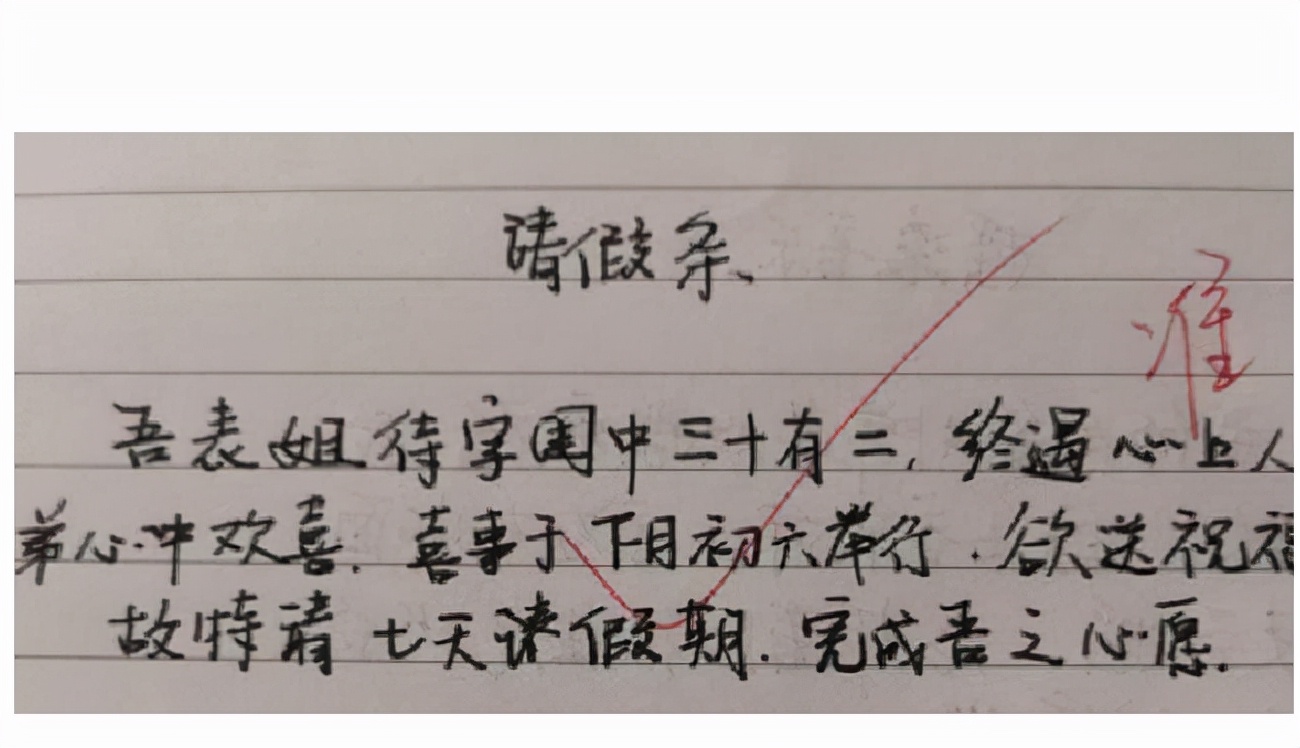 请假条
准
吾表姐待字闺中三十有二,终遇心上人
弟心中欢喜.喜事于下月初六举行.欲送祝福
故特请七天请假期.完成吾之心愿.